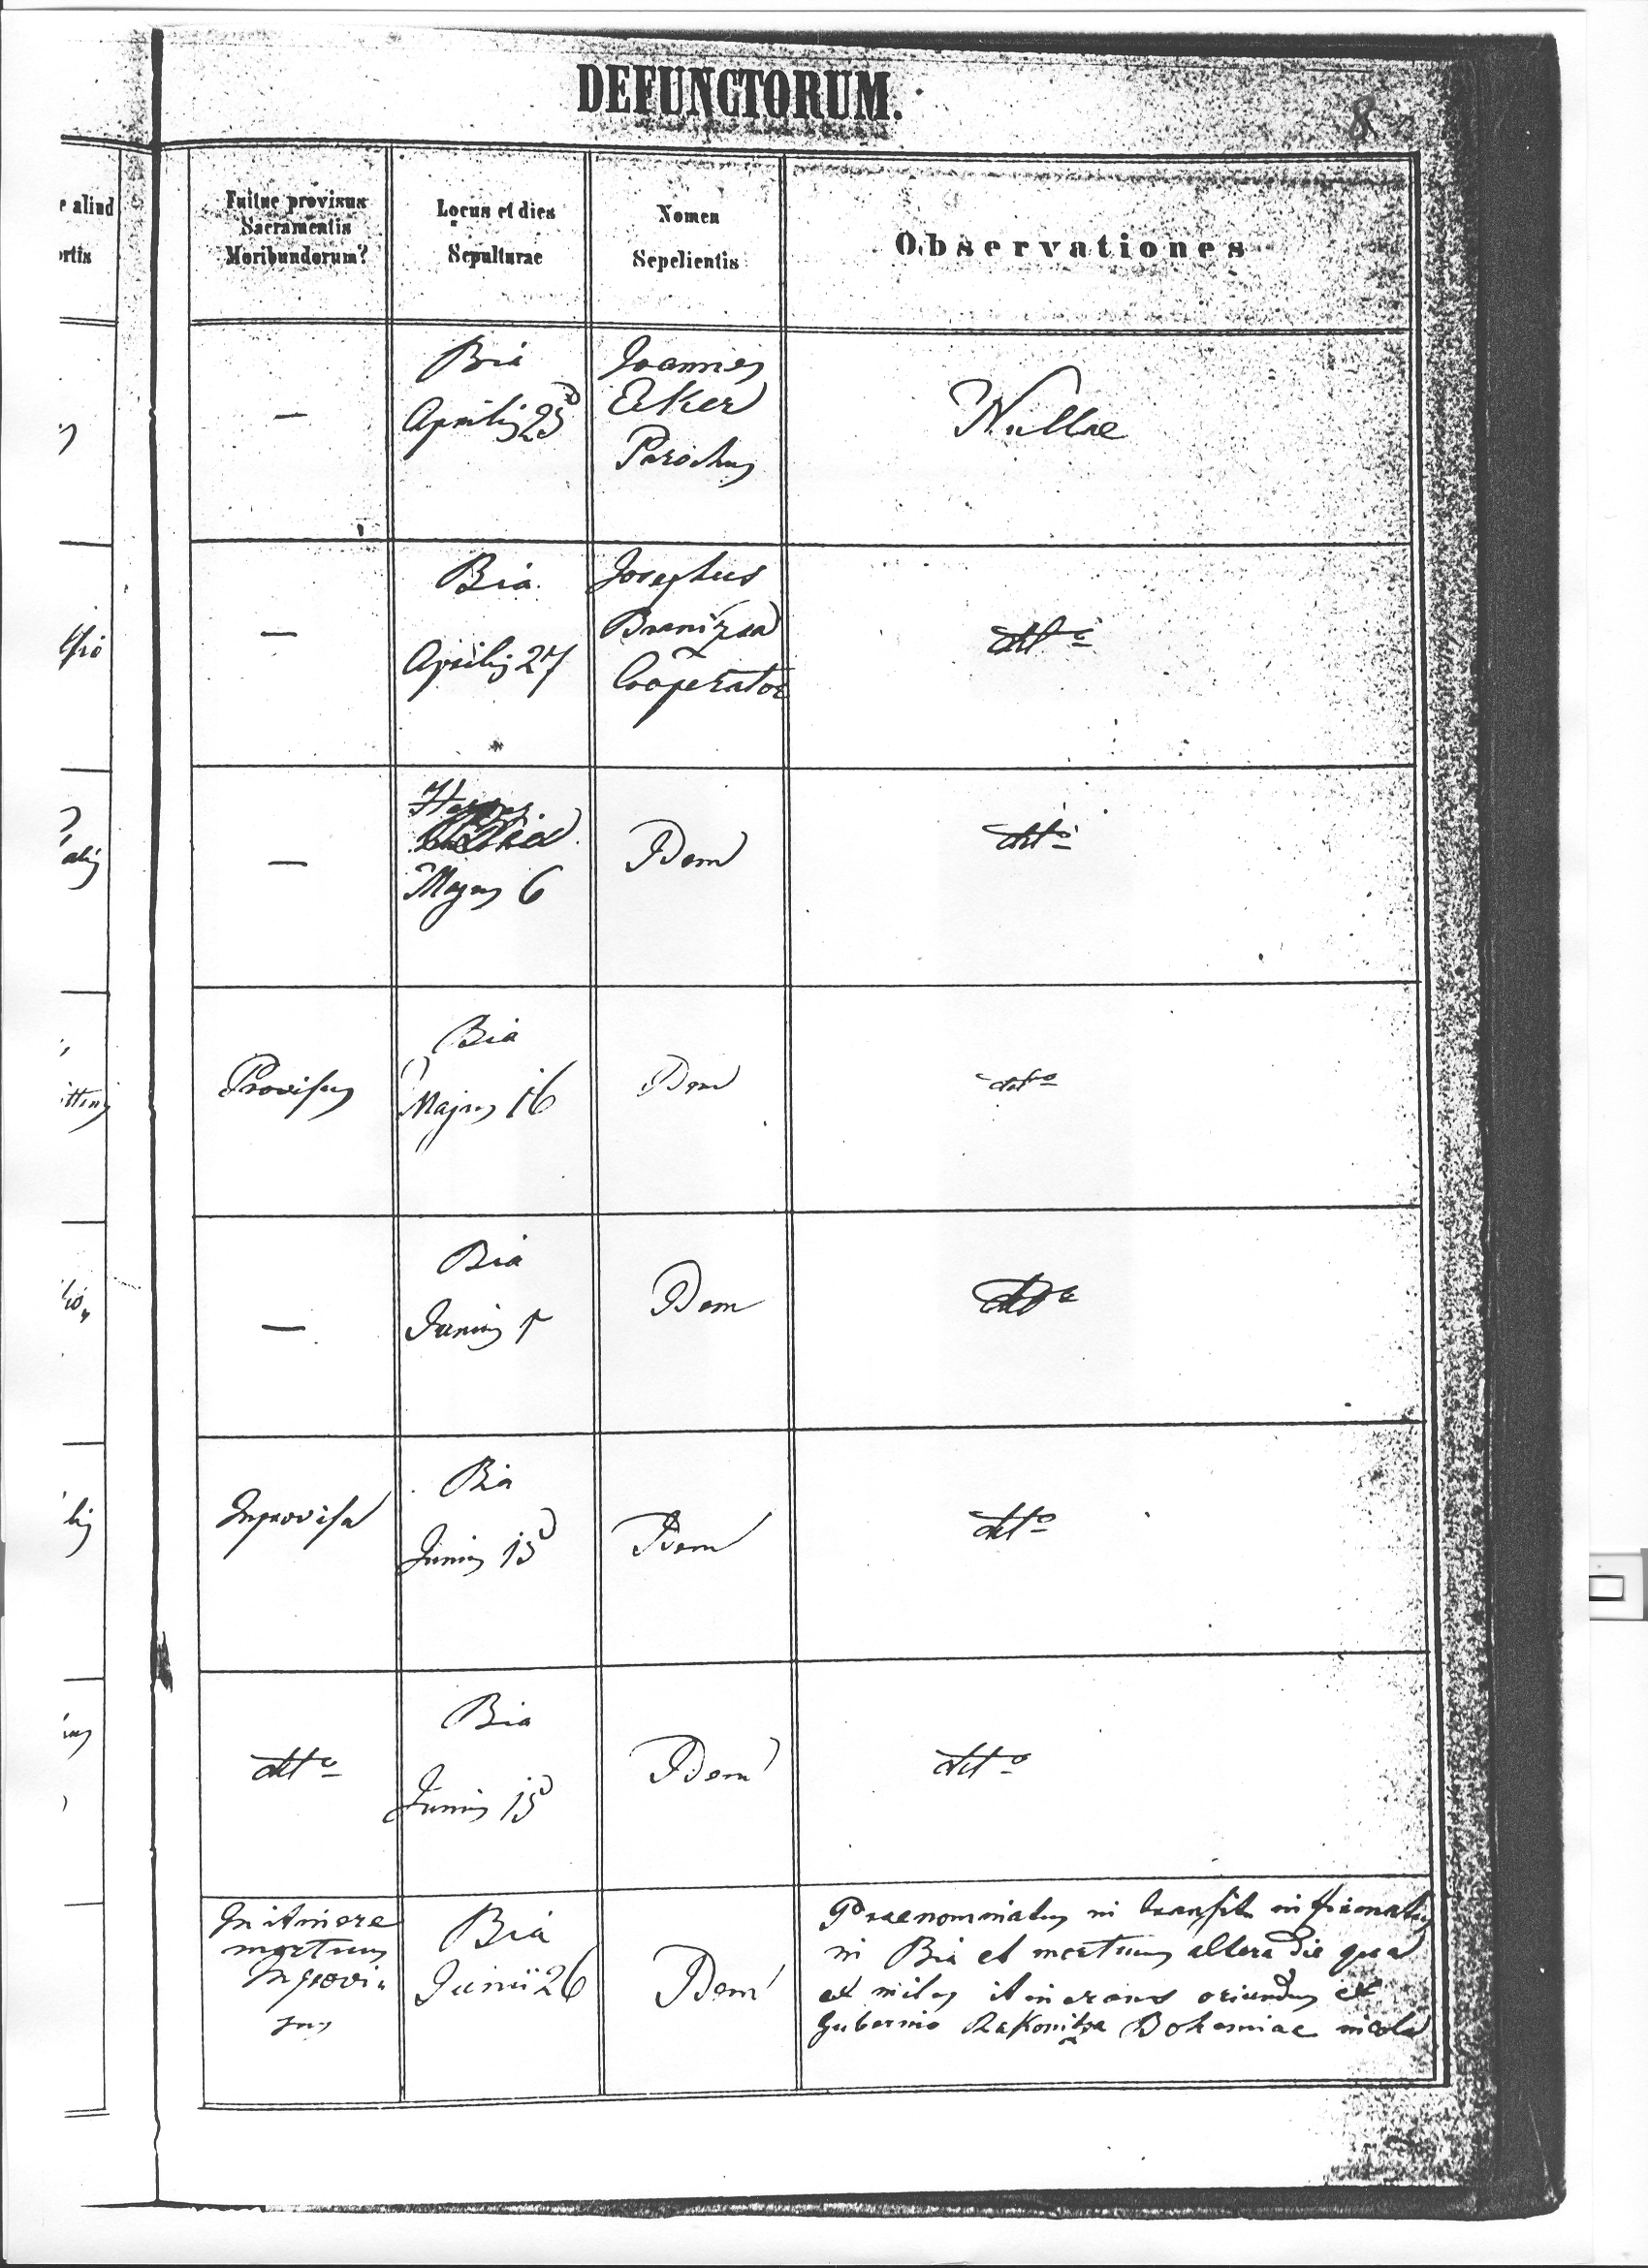 DEFUNCTORUM.
8
e aliud
ortis
Fuitne provisus
Sacramentis
Moribundorum?
Locus et dies
Sepulturae
Nomen
Sepelientis
Observationes
—
Bia
Aprilis 25
Joannes
Ecker
Parochus
Nullae
—
Bia
Aprilis 27
Josephus
Branitza
Cooperator
dtto
—
Majus 6
Idem
dtto
Provisus
Bia
Majus 16
Idem
dtto
—
Bia
Junius 1
Idem
dtto
Improvisa
Bia
Junius 15
Idem
dtto
dtto
Bia
Junius 15
Idem
dtto
In itinere
mortuus
Improvi-
sus
Bia
Junii 26
Idem
Praenominatus in transitu infirmatus
in Bia et mortuus altera die qua
et miles itinerans oriundus ex
Gubernio Rakonitza Bohemiae incola